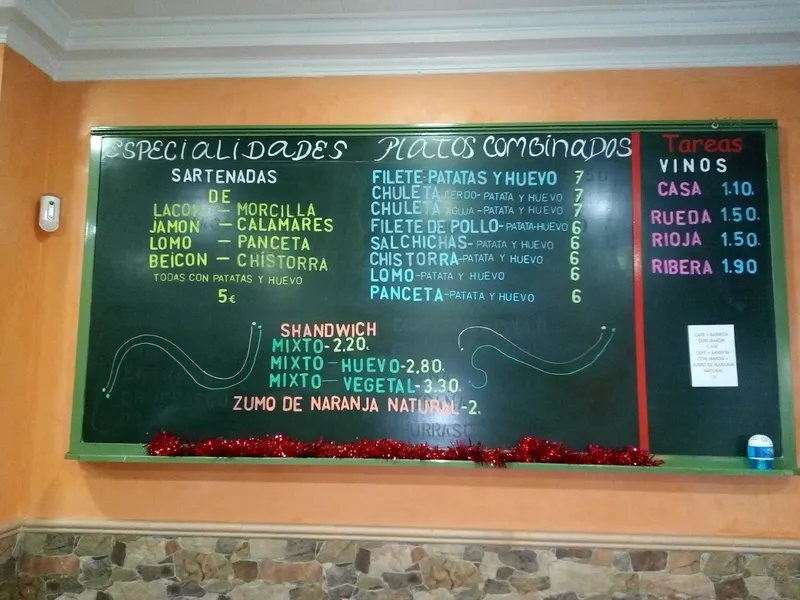 ESPECIALIDADES
SARTENADAS
DE
LACON — MORCILLA
JAMON — CALAMARES
LOMO — PANCETA
BEICON — CHISTORRA
TODAS CON PATATAS Y HUEVO
5€
PLATOS COMBINADOS
FILETE-PATATAS Y HUEVO 7
CHULETA CERDO-PATATA Y HUEVO 7
CHULETA AGUJA-PATATA Y HUEVO 7
FILETE DE POLLO-PATATA-HUEVO 6
SALCHICHAS-PATATA Y HUEVO 6
CHISTORRA-PATATA Y HUEVO 6
LOMO-PATATA Y HUEVO 6
PANCETA-PATATA Y HUEVO 6
SHANDWICH
MIXTO-2,20.
MIXTO-HUEVO-2,80.
MIXTO-VEGETAL-3.30
ZUMO DE NARANJA NATURAL-2.
Tareas
VINOS
CASA 1.10.
RUEDA 1.50.
RIOJA 1.50.
RIBERA 1.90